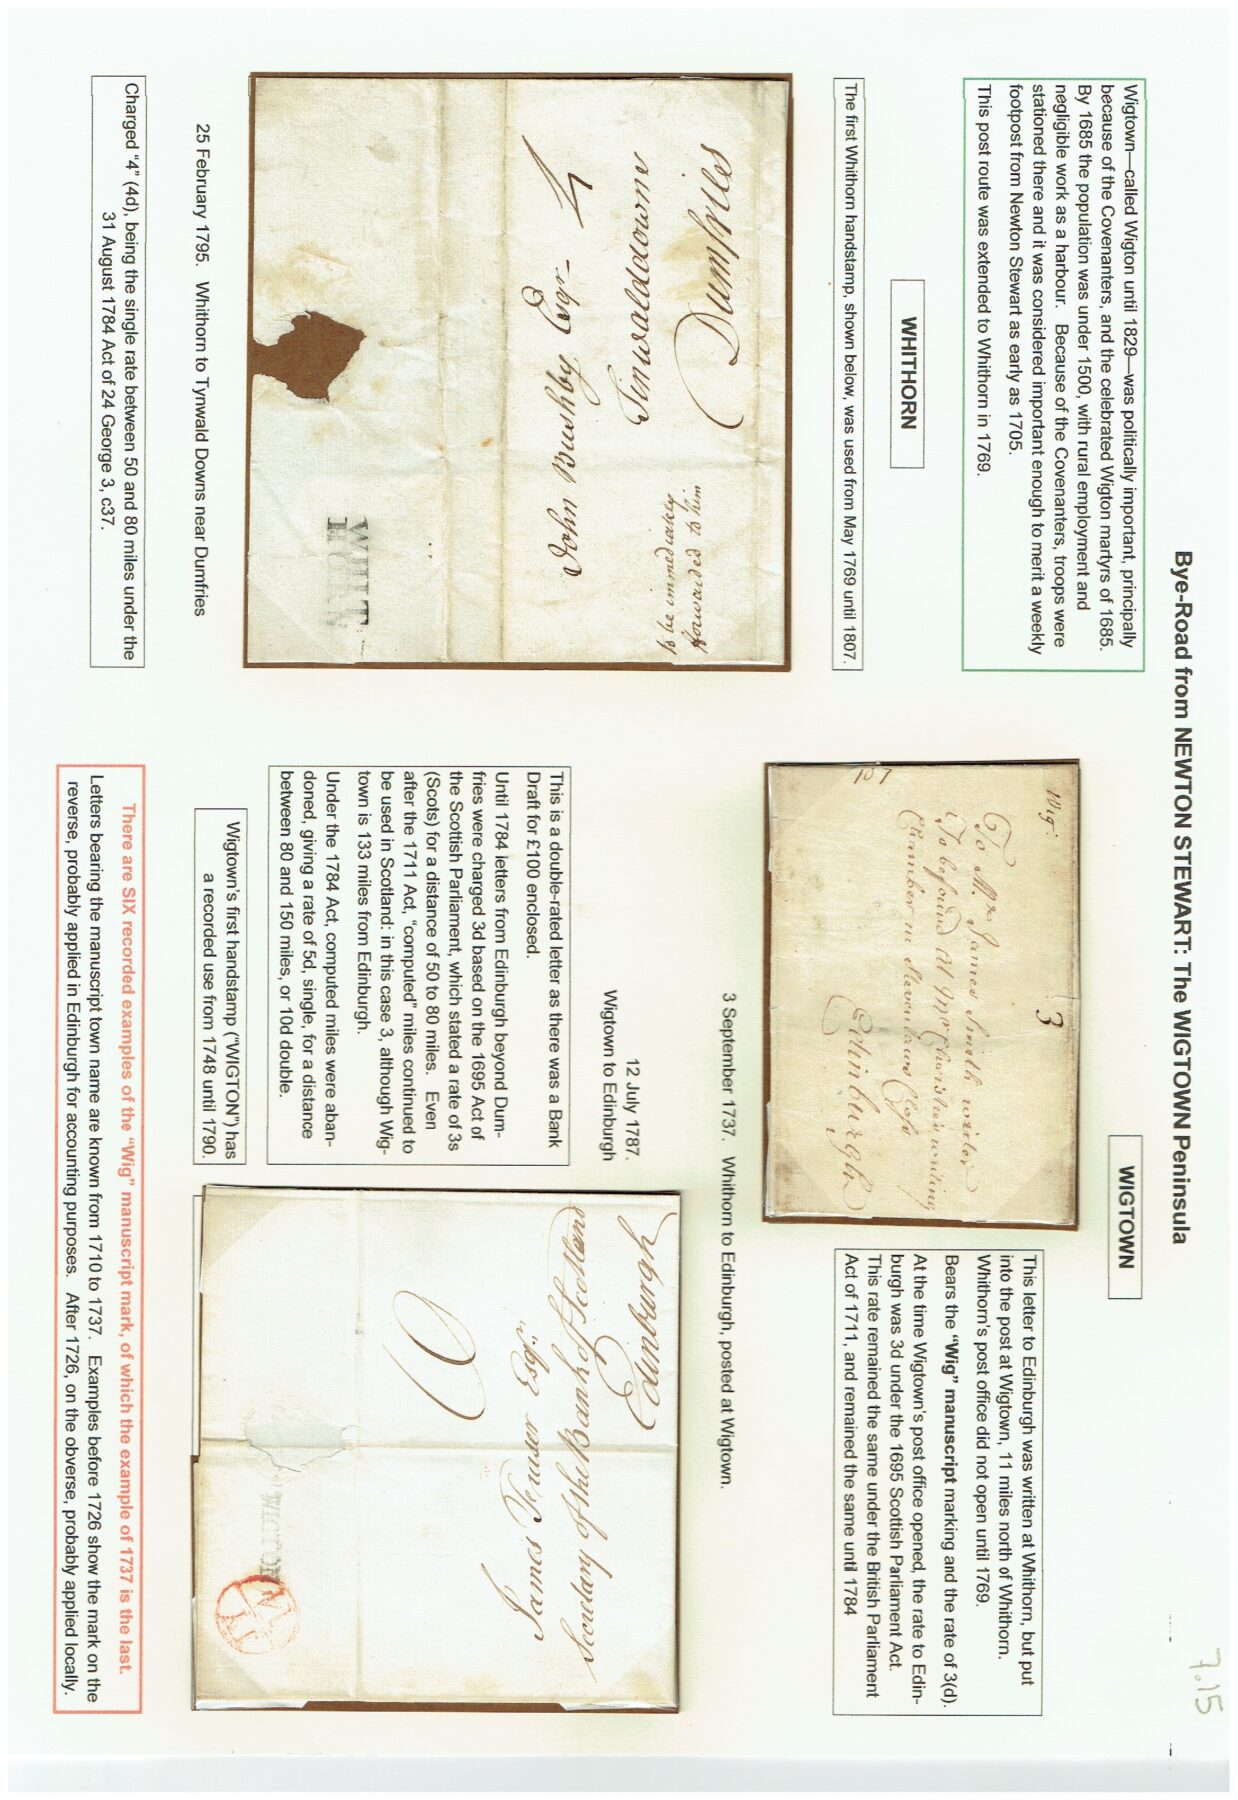 7.15
Bye-Road from NEWTON STEWART: The WIGTOWN Peninsula
Wigtown—called Wigton until 1829—was politically important, principally
because of the Covenanters, and the celebrated Wigton martyrs of 1685.
By 1685 the population was under 1500, with rural employment and
negligible work as a harbour. Because of the Covenanters, troops were
stationed there and it was considered important enough to merit a weekly
footpost from Newton Stewart as early as 1705.
This post route was extended to Whithorn in 1769.
WHITHORN
The first Whithorn handstamp, shown below, was used from May 1769 until 1807.
to be immediately
forwarded to him
John
Esqr.
4
Tinwalddowns
Dumfries
WHIT
HORN
25 February 1795. Whithorn to Tynwald Downs near Dumfries
Charged “4” (4d), being the single rate between 50 and 80 miles under the
31 August 1784 Act of 24 George 3, c37.
WIGTOWN
Wig:
3
To Mr. James Smith writer
To be found At Mr Christies writing
Chamber in Stevenlaws Closs
Edinburgh
This letter to Edinburgh was written at Whithorn, but put
into the post at Wigtown, 11 miles north of Whithorn.
Whithorn's post office did not open until 1769.
Bears the “Wig” manuscript marking and the rate of 3(d).
At the time Wigtown's post office opened, the rate to Edin-
burgh was 3d under the 1695 Scottish Parliament Act.
This rate remained the same under the British Parliament
Act of 1711, and remained the same until 1784
3 September 1737. Whithorn to Edinburgh, posted at Wigtown.
12 July 1787.
Wigtown to Edinburgh
This is a double-rated letter as there was a Bank
Draft for £100 enclosed.
Until 1784 letters from Edinburgh beyond Dum-
fries were charged 3d based on the 1695 Act of
the Scottish Parliament, which stated a rate of 3s
(Scots) for a distance of 50 to 80 miles. Even
after the 1711 Act, “computed” miles continued to
be used in Scotland: in this case 3, although Wig-
town is 133 miles from Edinburgh.
Under the 1784 Act, computed miles were aban-
doned, giving a rate of 5d, single, for a distance
between 80 and 150 miles, or 10d double.
Wigtown's first handstamp (“WIGTON”) has
a recorded use from 1748 until 1790.
James
Esqr.
Edinburgh
WIGTON
There are SIX recorded examples of the “Wig” manuscript mark, of which the example of 1737 is the last.
Letters bearing the manuscript town name are known from 1710 to 1737. Examples before 1726 show the mark on the
reverse, probably applied in Edinburgh for accounting purposes. After 1726, on the obverse, probably applied locally.